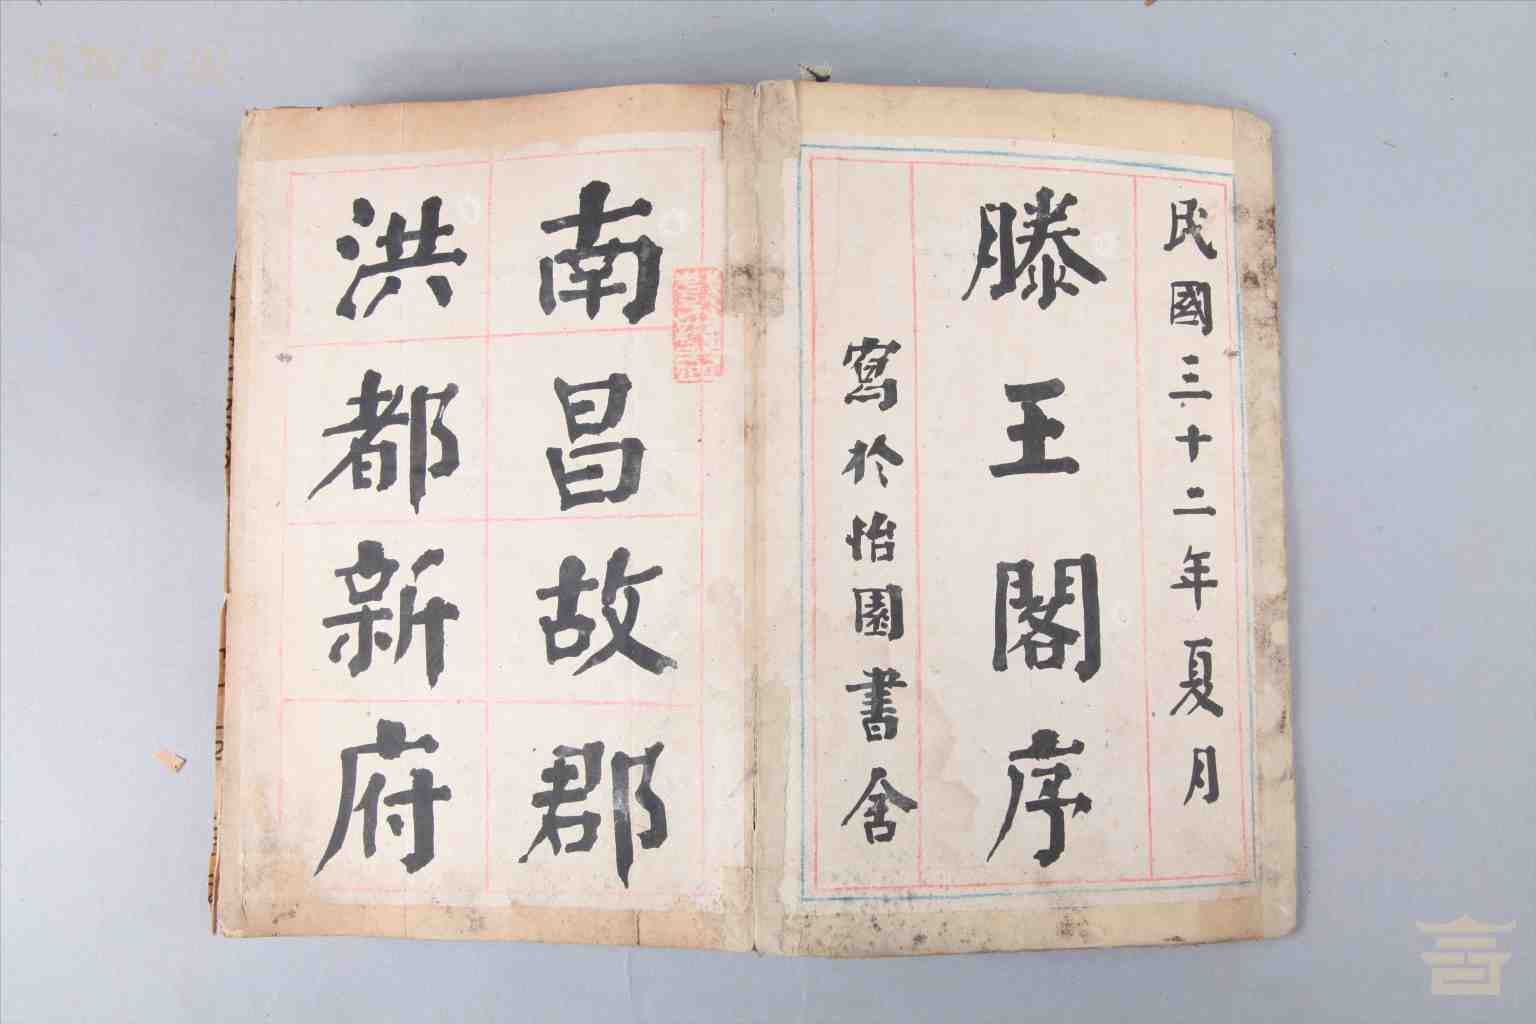 民國三十二年夏月
滕王閣序
寫於怡園書舍
南昌故郡
洪都新府